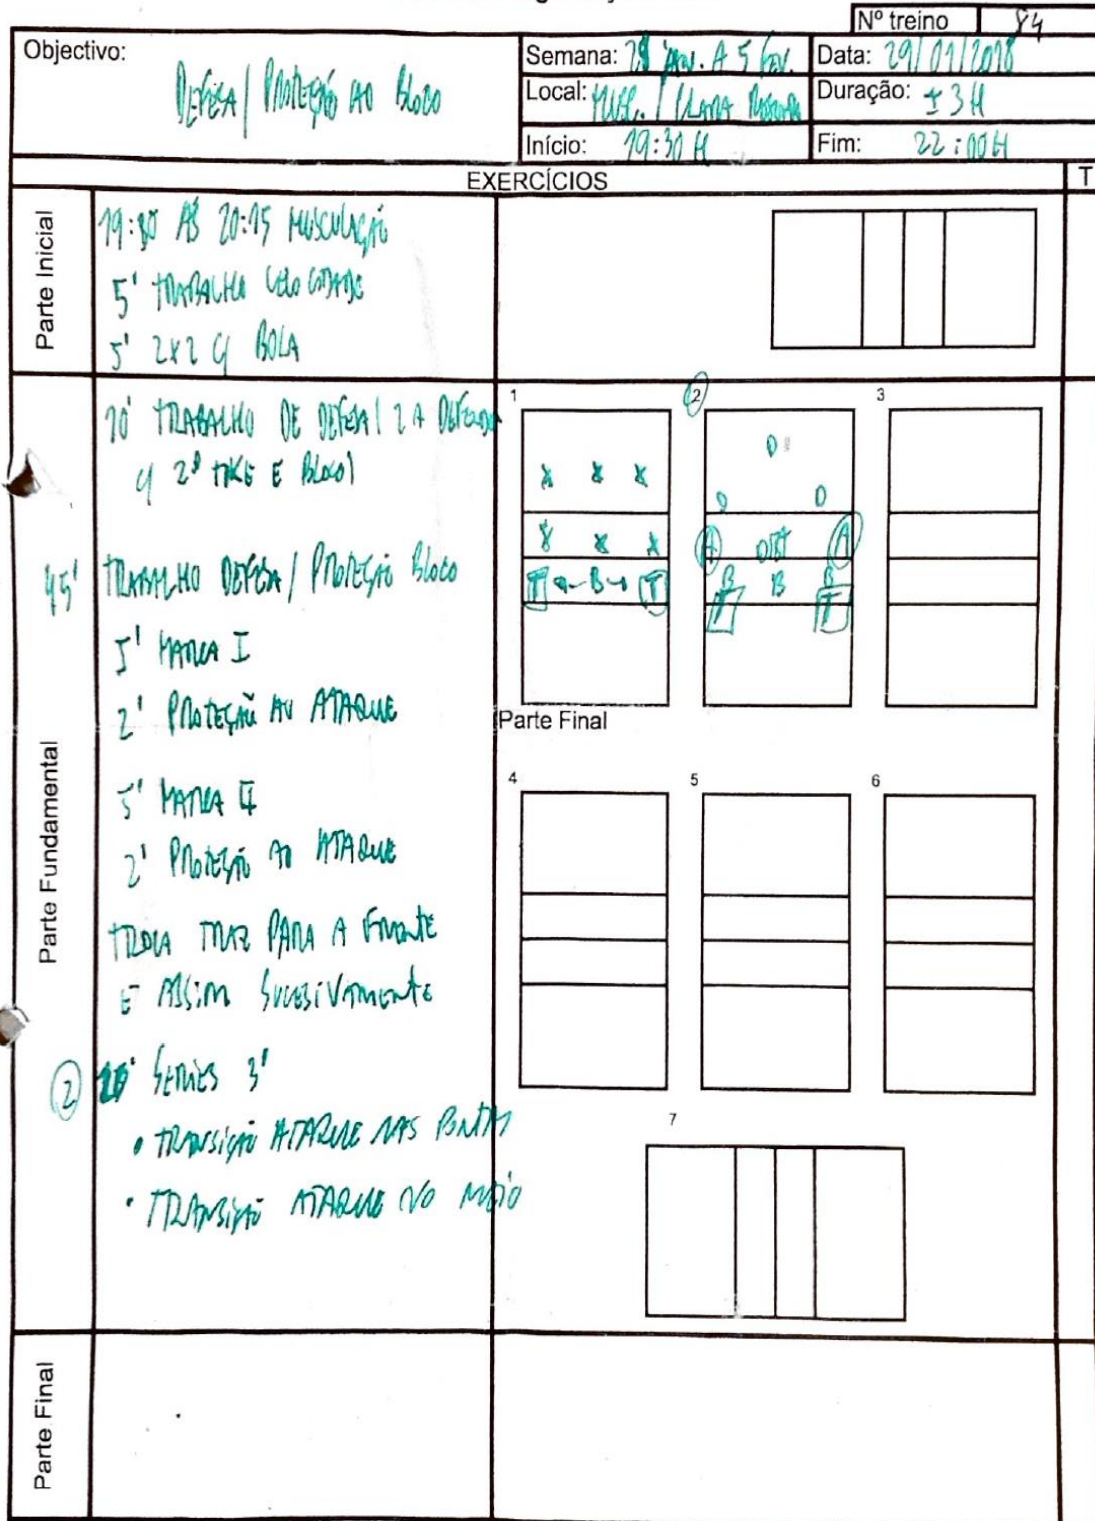 Nº treino 84
Objectivo: DEFESA / PROTEÇÃO AO BLOCO
Semana: 28 JAN. A 5 FEV.
Data: 29/01/2018
Local: MUSC. / CLARA
Duração: ± 3H
Início: 19:30 H
Fim: 22:00H
EXERCÍCIOS
T
Parte Inicial
19:30 AS 20:15 MUSCULAÇÃO
5' TRABALHO VELOCIDADE
5' 2X2 C/ BOLA
Parte Fundamental
10' TRABALHO DE DEFESA ( 2 A
C/ 2º TOKE E BLOCO)
45' TRABALHO DEFESA / PROTEÇÃO BLOCO
5' MANCA I
2' PROTEÇÃO AO ATAQUE
5' MANCA II
2' PROTEÇÃO AO ATAQUE
TROCA TRAZ PARA A FRENTE
E ASSIM SUCESIVAMENTE
2 SERIES 3'
• TRANSIÇÃO ATAQUE NAS PONTAS
• TRANSIÇÃO ATAQUE NO MEIO
1
X X X
X X X
T B T
2
D
D D
A DIST A
B B B
T T
3
Parte Final
4
5
6
7
Parte Final